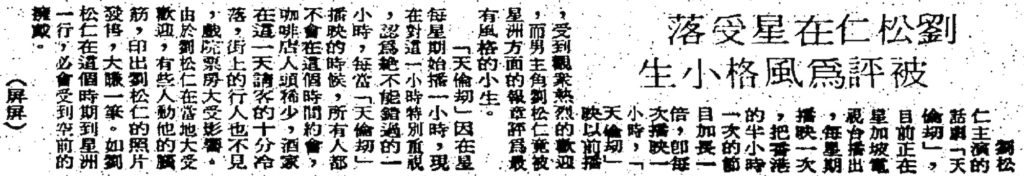 劉松仁在星受落
被評爲風格小生
劉松
仁主演的
話劇「天
倫劫」，
目前正在
星加坡電
視台播出
，每星期
播映一次
，把香港
的半小時
一次的節
目加長一
倍，卽每
次播映一
小時，「
天倫劫」
映以前播
，受到觀衆熱烈的歡迎
，而男主角劉松仁竟被
星洲方面的報章評爲最
有風格的小生。
「天倫劫」因在星
每星期始播一小時，現
在對這一小時特別重視
，認爲絕不能錯過的一
小時，每當「天倫劫」
播映的時候，所有人都
不會在這個時間約會，
咖啡店人頭稀少，酒家
在這一天請客的十分冷
落，街上的行人也不見
，戲院票房大受影響。
由於劉松仁在當地大受
歡迎，有些人動他的腦
筋，印出劉松仁的照片
發售，大賺一筆。如劉
松仁在這個時期到星洲
一行，必會受到空前的
擁戴。
（屏屏）